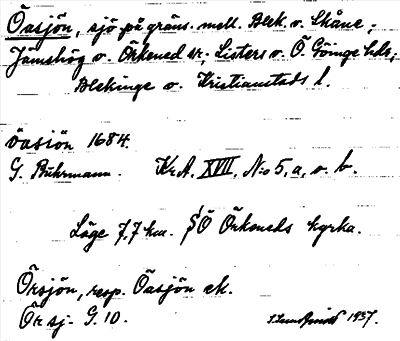 Öasjön, sjö på gräns. mell. Blek. o. Skåne;
Jämshög o. Örkened sr; Listers o. Ö. Göinge hdr;
Blekinge o. Kristianstads l.
öasiön 1684.
G. Buhrmann. Kr.A. XVIII, N:o 5, a, o. b.
Läge 7,7 km. SÖ Örkeneds kyrka.
Örsjön, resp. Öasjön ek.
Ör sj. G. 10. 1937.